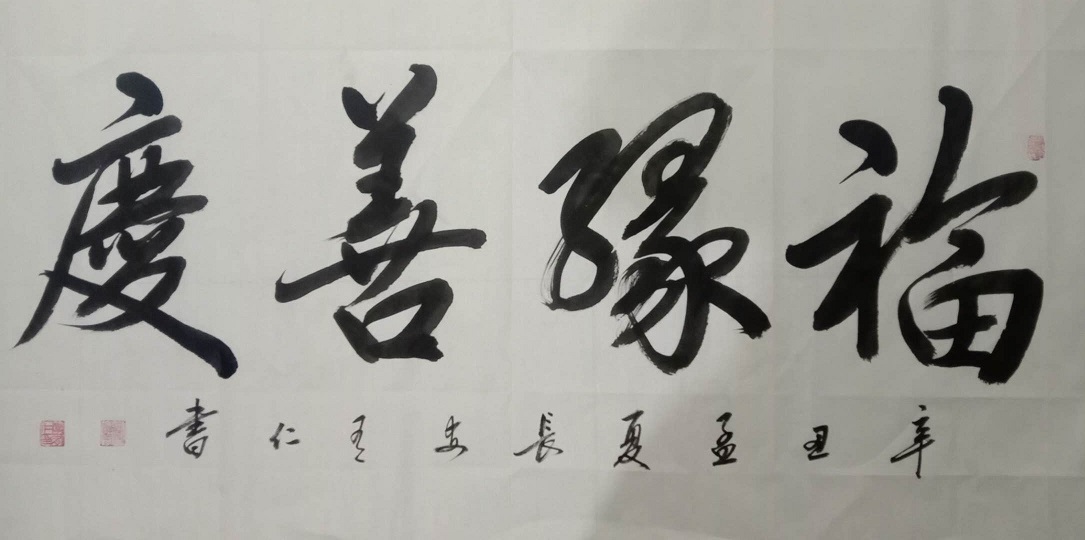 福緣善慶
辛丑孟夏長安王仁書